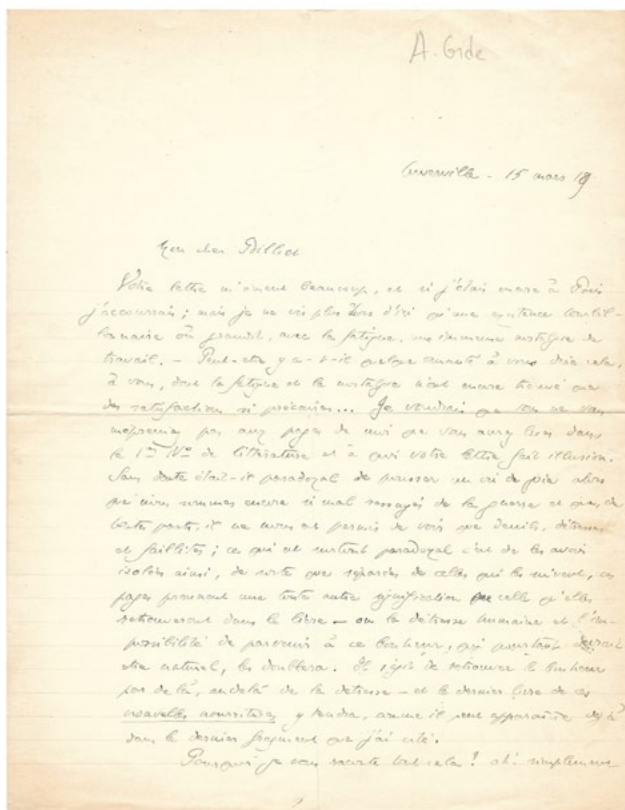 A. Gide
Cuverville - 15 mars 19
Mon cher Billiet
Votre lettre m'émeut beaucoup, et si j'étais encore à Paris
j'accourrais ; mais je ne vis plus hors d'ici qu'une existence tourbil-
lonnaire où grandit, avec la fatigue, une immense nostalgie du
travail. - Peut-être y a-t-il quelque cruauté à vous dire cela,
à vous, dont la fatigue et la nostalgie n'ont encore trouvé que
des satisfactions si précaires... Je voudrais que vous ne vous
mépreniez pas aux pages de moi que vous avez lues dans
le 1er No de littérature et à qui votre lettre fait illusion.
Sans doute était-il paradoxal de pousser un cri de joie alors
que nous sommes encore si mal ressuyés de la guerre et que de
toutes parts, il ne nous est permis de voir que deuils, détresses
et faillites ; ce qui est surtout paradoxal c'est de les avoir
isolées ainsi, de sorte que séparées de celles qui les suivent, ces
pages prennent une toute autre signification que celle qu'elles
retrouveront dans le livre - où la détresse humaine et l'im-
possibilité de parvenir à ce bonheur, qui pourtant devrait
être naturel, les doublera. Il s'agit de retrouver le bonheur
par delà, au delà de la détresse - et le dernier livre de ces
nouvelles nourritures y tendra, comme il peut apparaître déjà
dans le dernier fragment que j'ai cité.
Pourquoi je vous raconte tout cela ? oh ! simplement